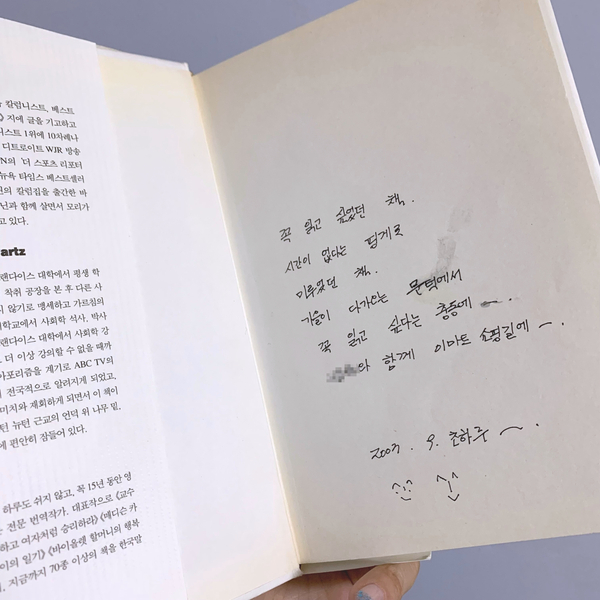 칼럼니스트, 베스트
지에 글을 기고하고
스트 1위에 10차례나
디트로이트 WJR 방송
N의 '더 스포츠 리포터
뉴욕 타임스 베스트셀러
의 칼럼집을 출간한 바
닌과 함께 살면서 모리가
고 있다.
artz
랜다이스 대학에서 평생 학
착취 공장을 본 후 다른 사
지 않기로 맹세하고 가르침의
학교에서 사회학 석사, 박사
랜다이스 대학에서 사회학 강
더 이상 강의할 수 없을 때까
아포리즘을 계기로 ABC TV의
전국적으로 알려지게 되었고,
미치와 재회하게 되면서 이 책이
턴 뉴턴 근교의 언덕 위 나무 밑,
에 편안히 잠들어 있다.
하루도 쉬지 않고, 꼭 15년 동안 영
전문 번역작가. 대표작으로 《교수
하고 여자처럼 승리하라》 《매디슨 카
이의 일기》 《바이올렛 할머니의 행복
지금까지 70종 이상의 책을 한국말
꼭 읽고 싶었던 책.
시간이 없다는 핑계로
미루었던 책.
가을이 다가오는 문턱에서
꼭 읽고 싶다는 충동에 ~.
와 함께 이마트 쇼핑길에 ~.
2003. 9. 초하루 ~.